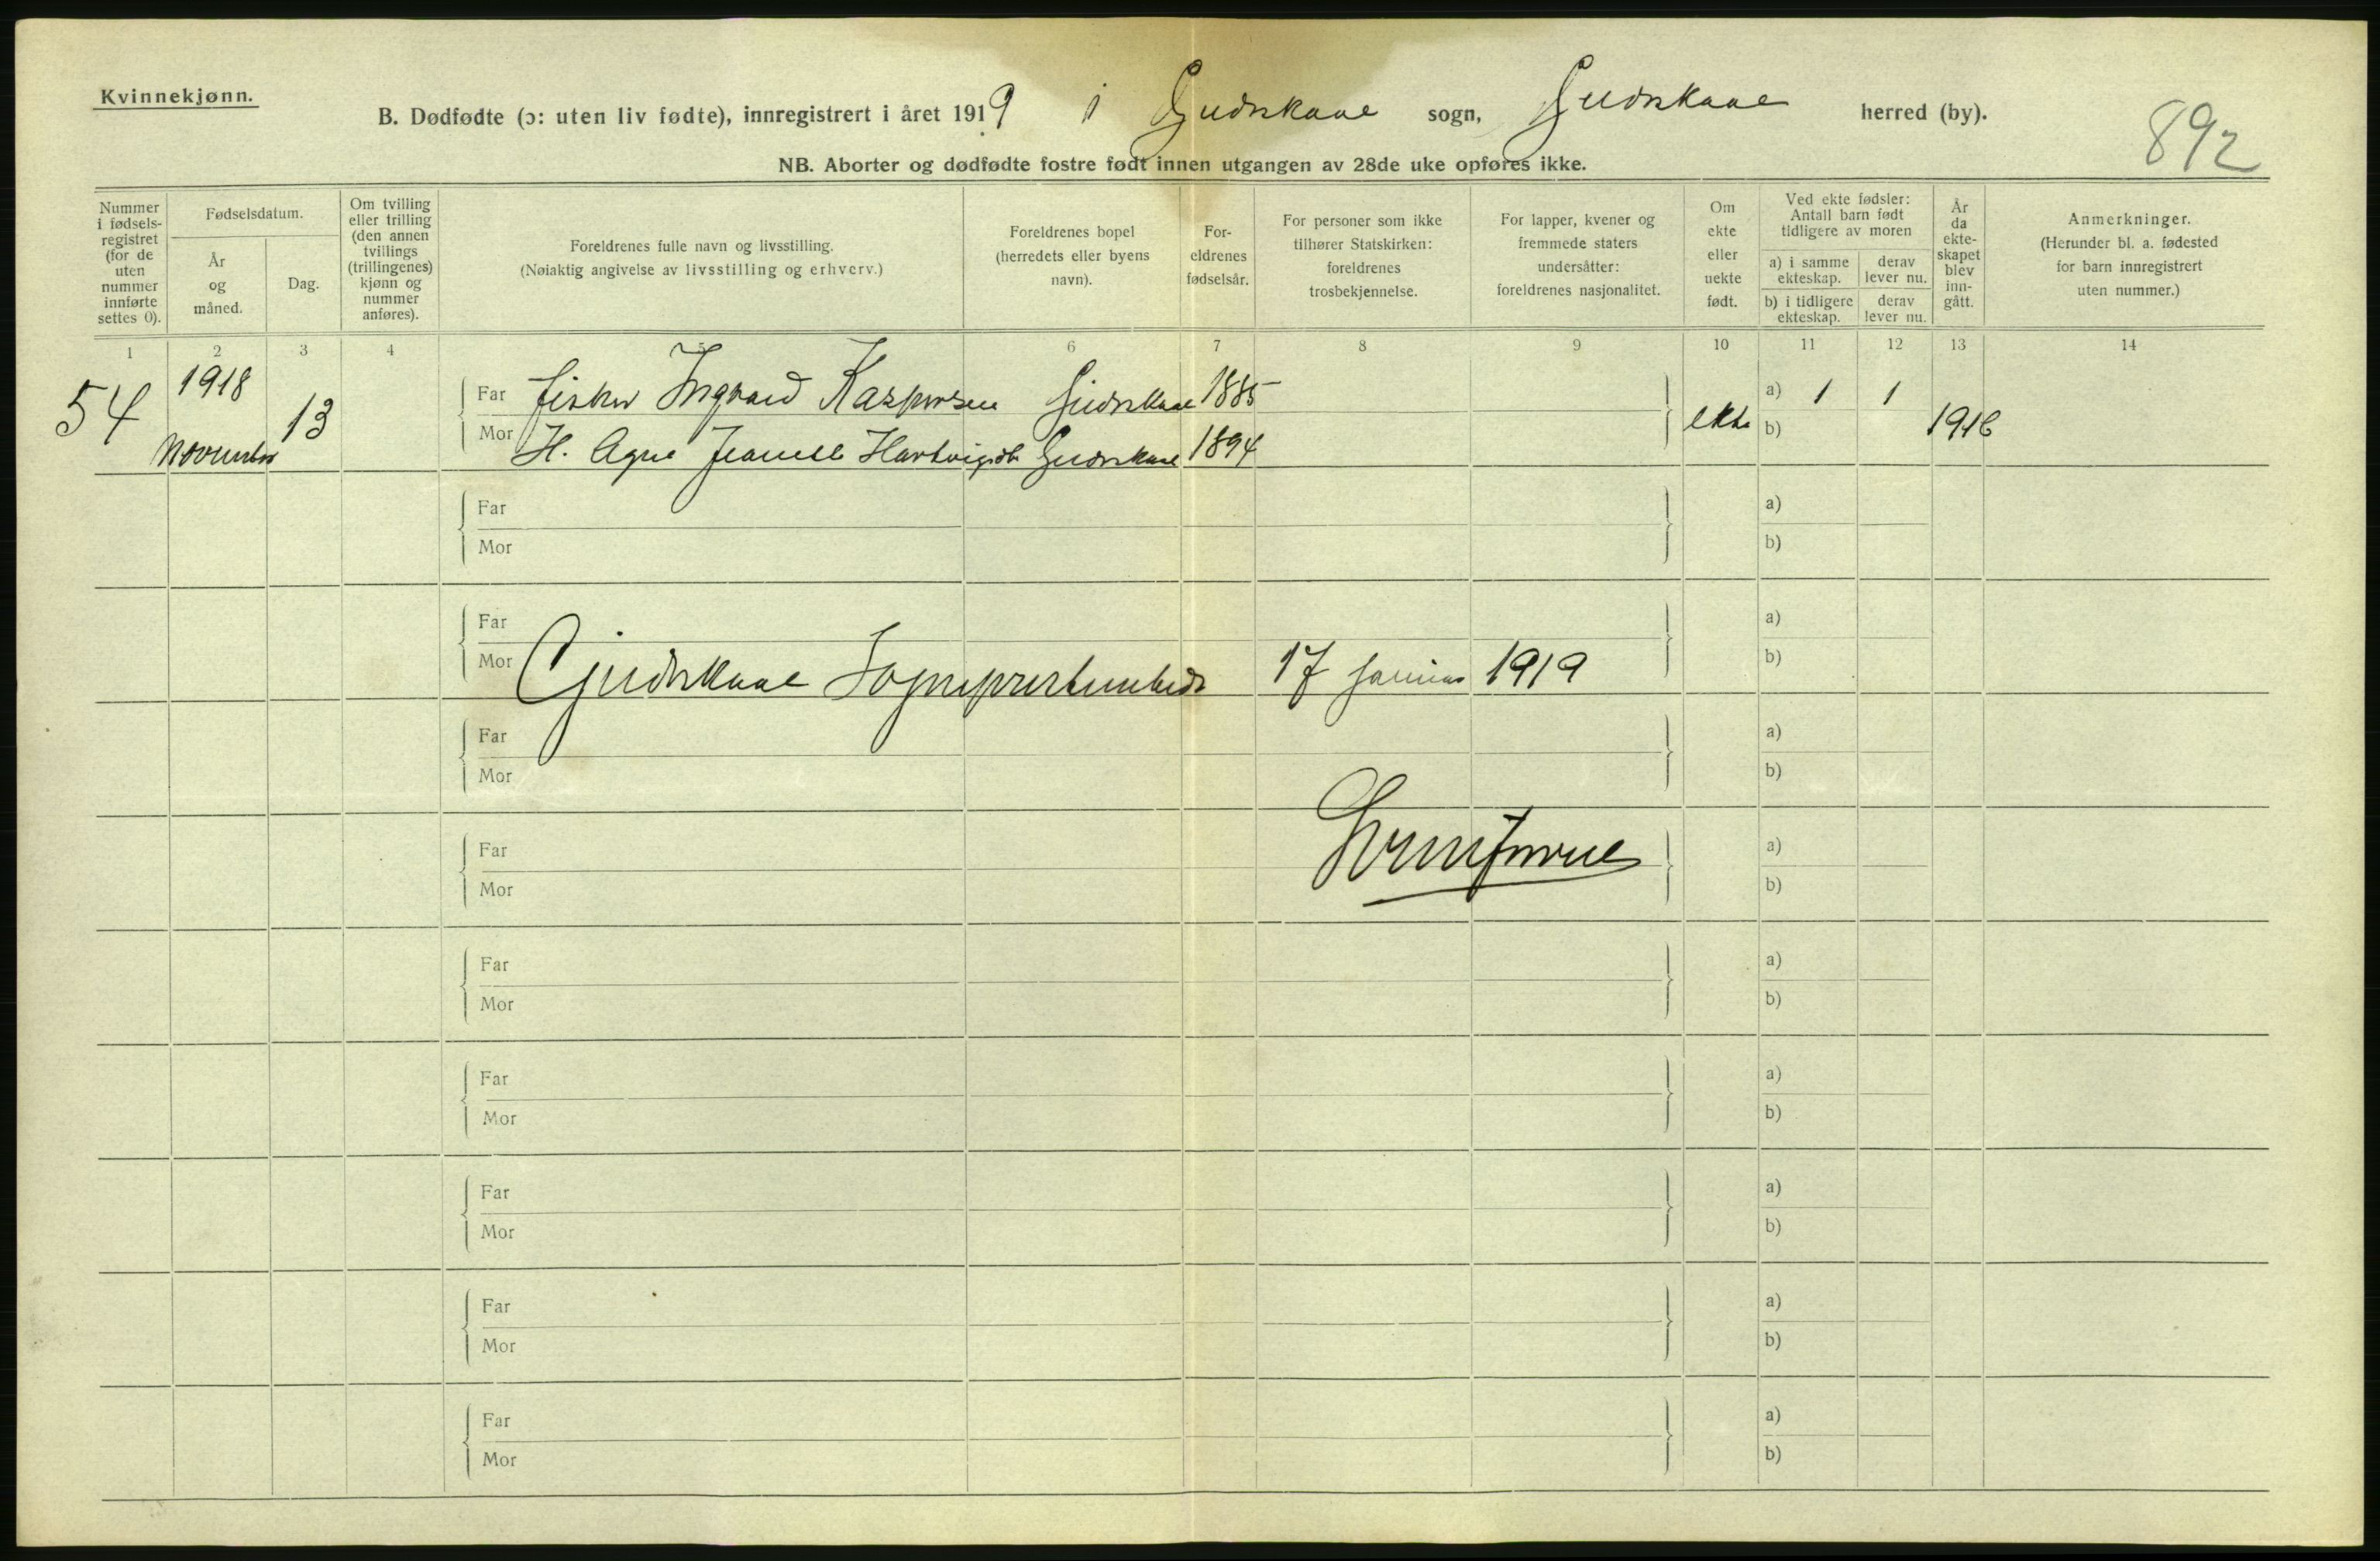 Kvinnekjønn.
B. Dødfødte (ɔ: uten liv fødte), innregistrert i året 1919 i Gudskaal sogn, Gudskaal herred (by).
892
NB. Aborter og dødfødte fostre født innen utgangen av 28de uke opføres ikke.
Nummer i fødsels-registret (for de uten nummer innførte settes 0).
Fødselsdatum.
År og måned.
Dag.
Om tvilling eller trilling (den annen tvillings (trillingenes) kjønn og nummer anføres).
Foreldrenes fulle navn og livsstilling.
(Nøiaktig angivelse av livsstilling og erhverv.)
Foreldrenes bopel (herredets eller byens navn).
For-eldrenes fødselsår.
For personer som ikke tilhører Statskirken: foreldrenes trosbekjennelse.
For lapper, kvener og fremmede staters undersåtter: foreldrenes nasjonalitet.
Om ekte eller uekte født.
Ved ekte fødsler: Antall barn født tidligere av moren
a) i samme ekteskap.
derav lever nu.
b) i tidligere ekteskap.
derav lever nu.
År da ekte-skapet blev inn-gått.
Anmerkninger.
(Herunder bl. a. fødested for barn innregistrert uten nummer.)
1 2 3 4 5 6 7 8 9 10 11 12 13 14
54 1918 November 13
Far fisker Ingvald Kaspersen 1885
Mor H. Agne Hartvigsdt 1894
ekte a) 1 1 1916
b)
Far a)
Mor b)
Far a)
Mor b)
Sogneprestembede 17 januar 1919
Far a)
Mor b)
Far a)
Mor b)
Far a)
Mor b)
Far a)
Mor b)
Far a)
Mor b)
Far a)
Mor b)
Far a)
Mor b)